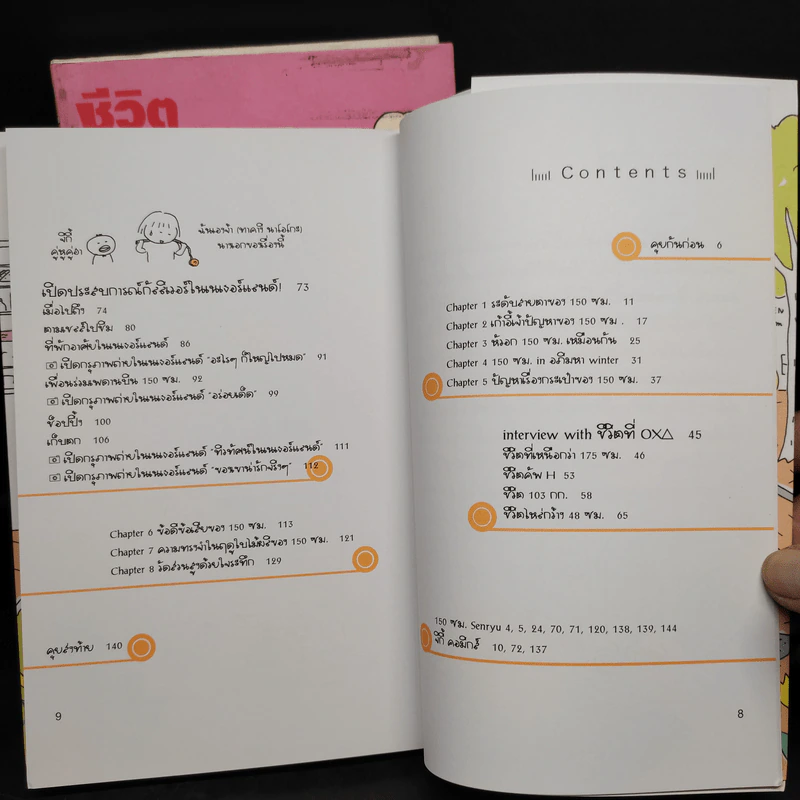 ชีวิต
Contents
คุยกันก่อน 6
Chapter 1 ระดับสายตาของ 150 ซม. 11
Chapter 2 เก้าอี้เจ้าปัญหาของ 150 ซม . 17
Chapter 3 หัวอก 150 ซม. เหมือนกัน 25
Chapter 4 150 ซม. in อภิมหา winter 31
Chapter 5 ปัญหาเรื่องกระเป๋าของ 150 ซม. 37
interview with ชีวิตที่ OX△ 45
ชีวิตที่เหนือกว่า 175 ซม. 46
ชีวิตคัพ H 53
ชีวิต 103 กก. 58
ชีวิตไหล่กว้าง 48 ซม. 65
150 ซม. Senryu 4, 5, 24, 70, 71, 120, 138, 139, 144
จิกี้ คอมิกส์ 10, 72, 137
8
จิกี้
คู่หูคู่ฮา
ฉันเองจ้า (ทาคางิ นาโอโกะ)
นางเอกของเรื่องนี้
เปิดประสบการณ์กัลลิเวอร์ในเนเธอร์แลนด์! 73
เมื่อไปถึง 74
ตามเชลล์ไปชิม 80
ที่พักอาศัยในเนเธอร์แลนด์ 86
เปิดกรุภาพถ่ายในเนเธอร์แลนด์ "อะไรๆ ก็ใหญ่ไปหมด" 91
เพื่อนร่วมเพดานบิน 150 ซม. 92
เปิดกรุภาพถ่ายในเนเธอร์แลนด์ "อร่อยเด็ด" 99
ช็อปปิ้ง 100
เก็บตก 106
เปิดกรุภาพถ่ายในเนเธอร์แลนด์ "ทิวทัศน์ในเนเธอร์แลนด์" 111
เปิดกรุภาพถ่ายในเนเธอร์แลนด์ "ของเขาน่ารักจริงๆ" 112
Chapter 6 ข้อดีข้อเสียของ 150 ซม. 113
Chapter 7 ความทรงจำในฤดูใบไม้ผลิของ 150 ซม. 121
Chapter 8 วัดส่วนสูงด้วยใจระทึก 129
คุยส่งท้าย 140
9